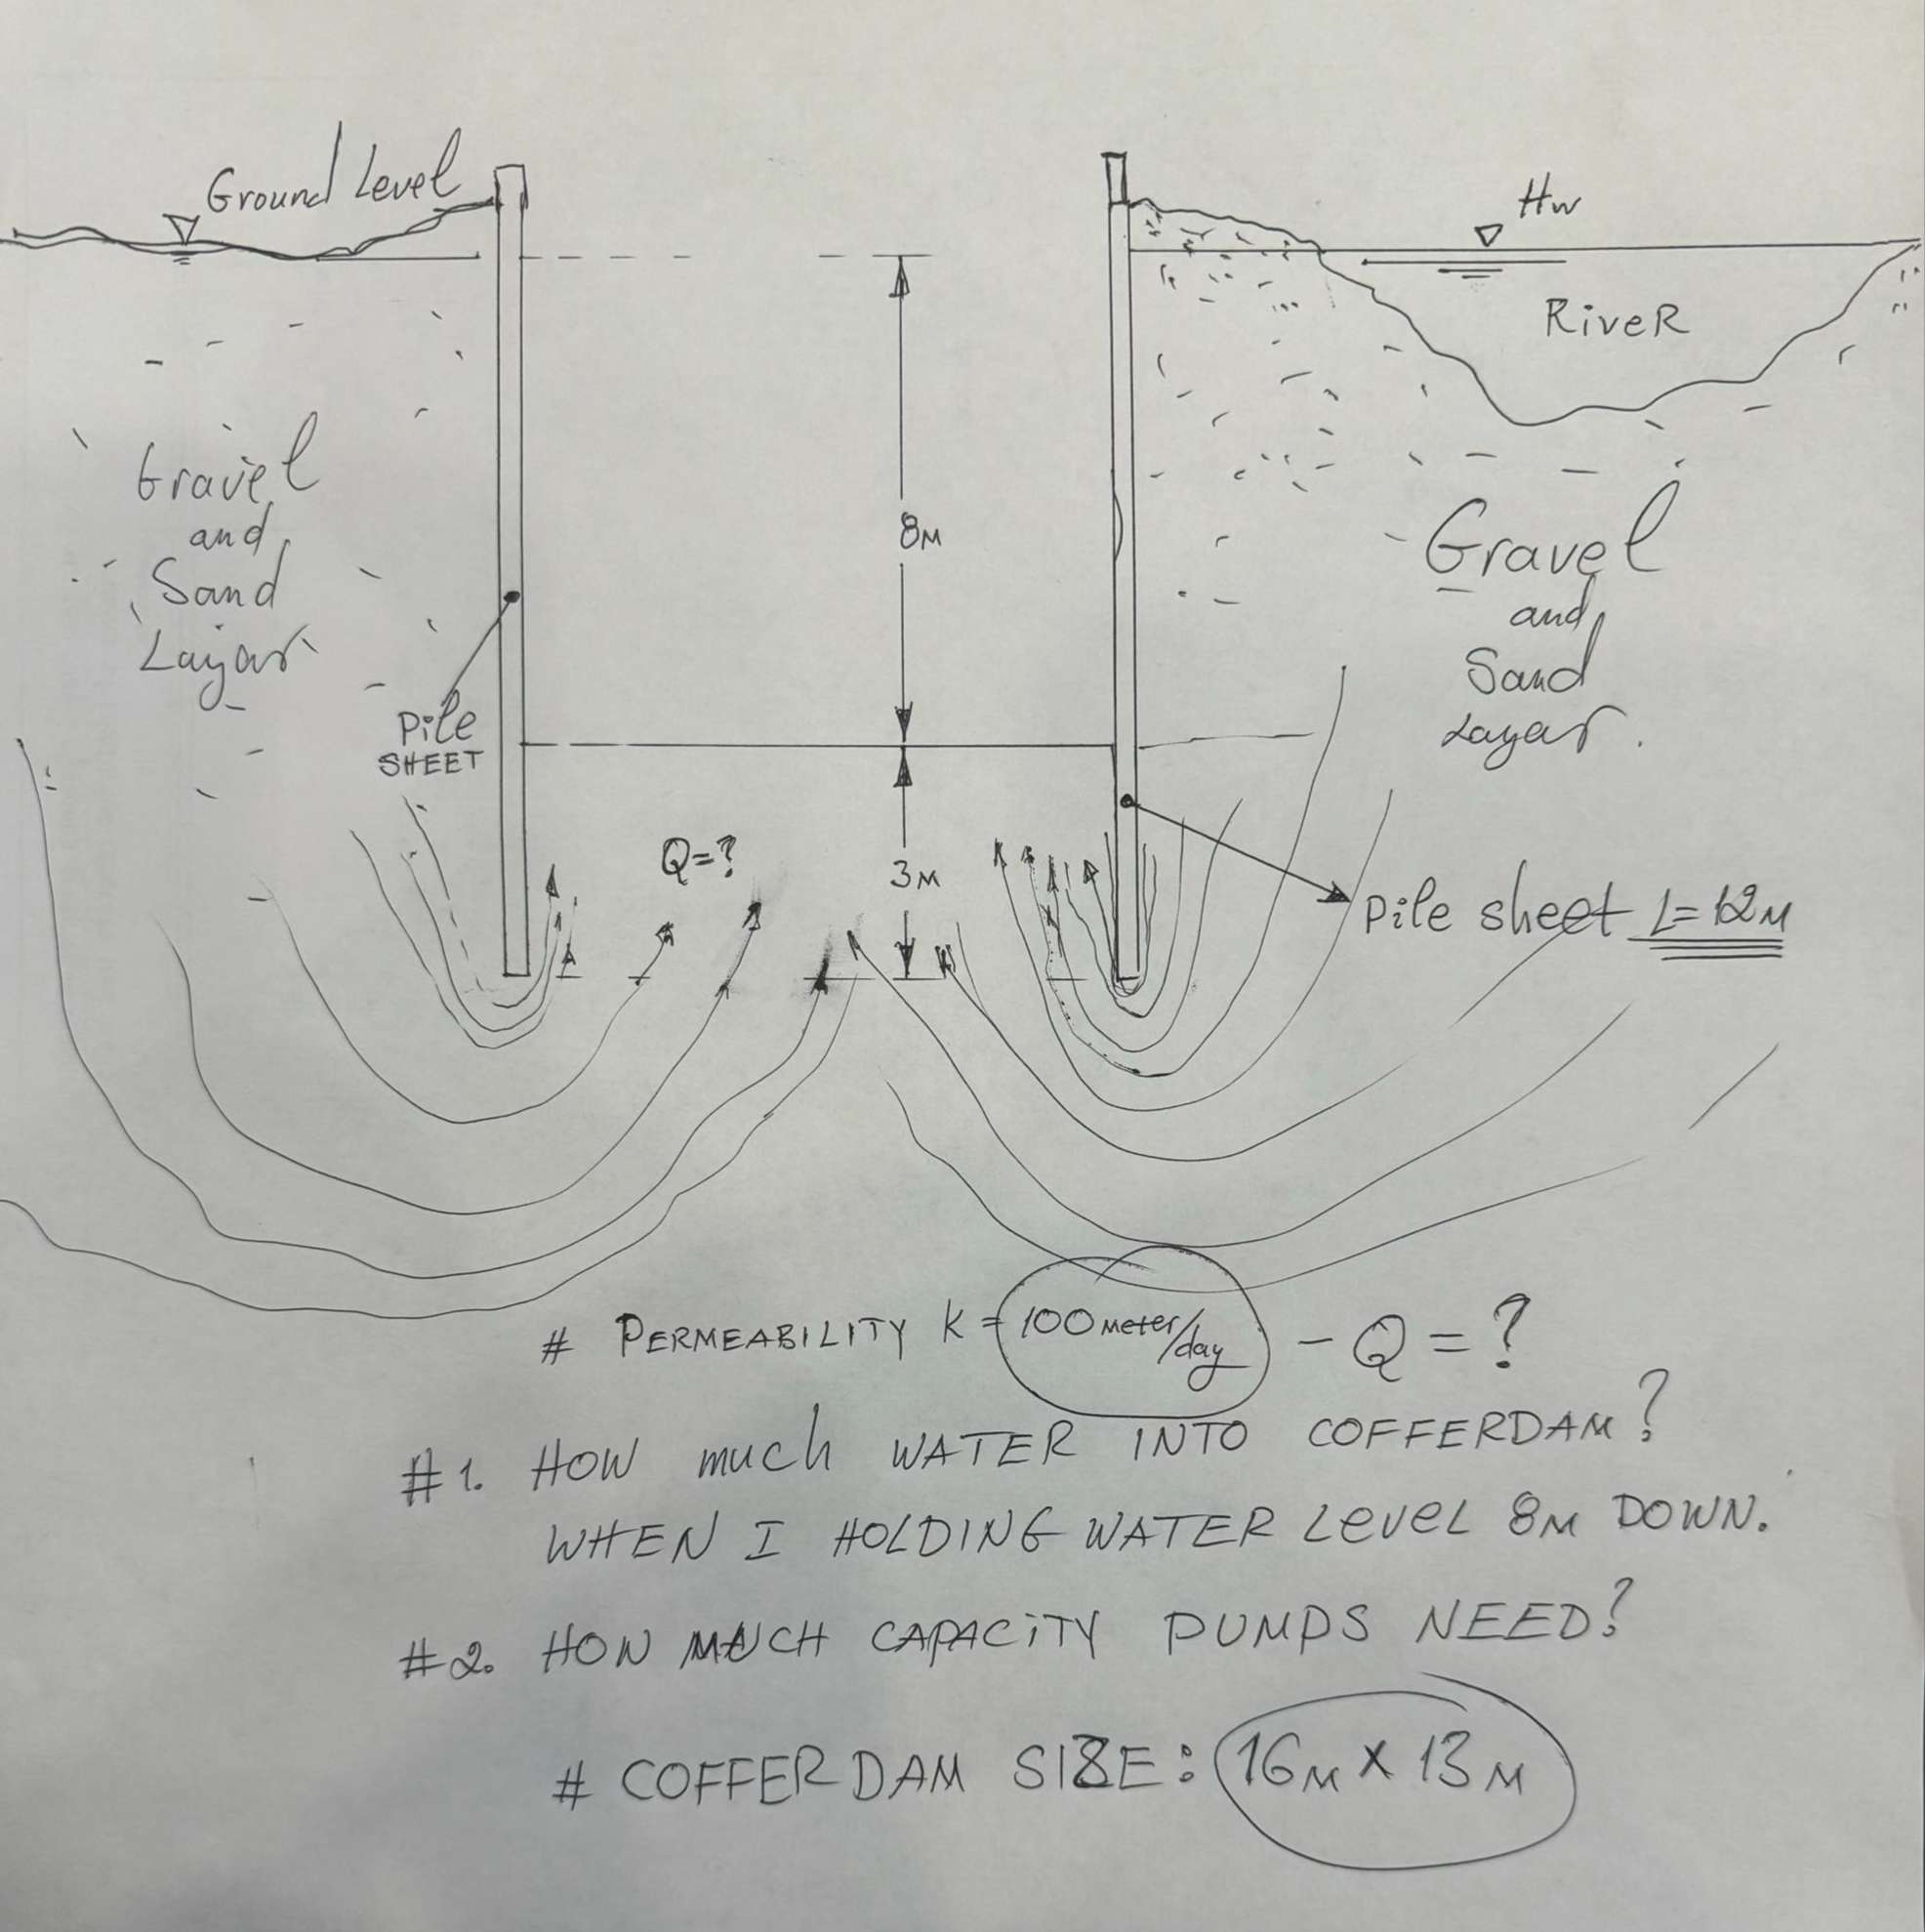 Ground Level
Hw
RiveR
8м
Gravel
and
Sand
Layar
Gravel
and
Sand
Layar.
Pile
SHEET
Q=?
3м
Pile sheet L=12м
# PERMEABILITY K=100 meter/day - Q=?
#1. HOW much WATER INTO COFFERDAM?
WHEN I HOLDING WATER Level 8м DOWN.
#2. HOW MUCH CAPACiTY PUMPS NEED?
# COFFER DAM SIZE: 16м x 13м